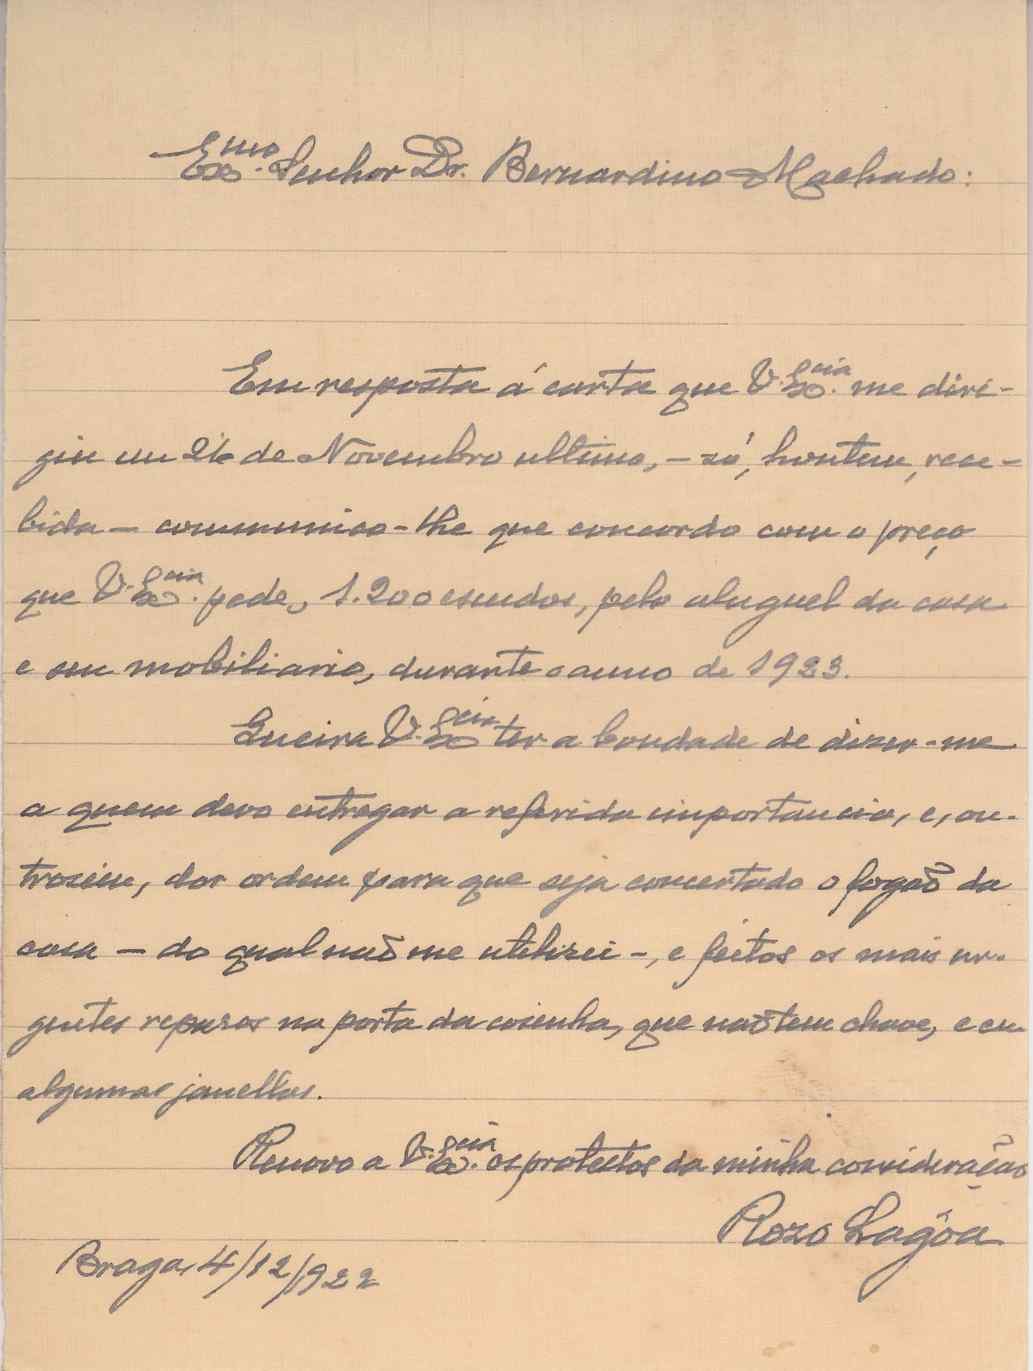 Ex.mo Senhor Dr. Bernardino Machado:
Em resposta á carta que V. Ex.cia me diri-
giu em 26 de Novembro ultimo, – só, hontem, rece-
bida – communico-lhe que concordo com o preço
que V. Ex.cia pede, 1.200 escudos, pelo aluguel da casa
e seu mobiliario, durante o anno de 1923.
Queira V. Ex.cia ter a bondade de dizer-me
a quem devo entregar a referida importancia, e, ou-
trosim, dar ordem para que seja concertado o fogaõ da
casa – do qual naõ me utilizei –, e feitos os mais ur-
gentes reparos na porta da cosinha, que naõ tem chave, e em
algumas janellas.
Renovo a V. Ex.cia os protestos da minha consideração
Rozo Lagôa
Braga, 4/12/922